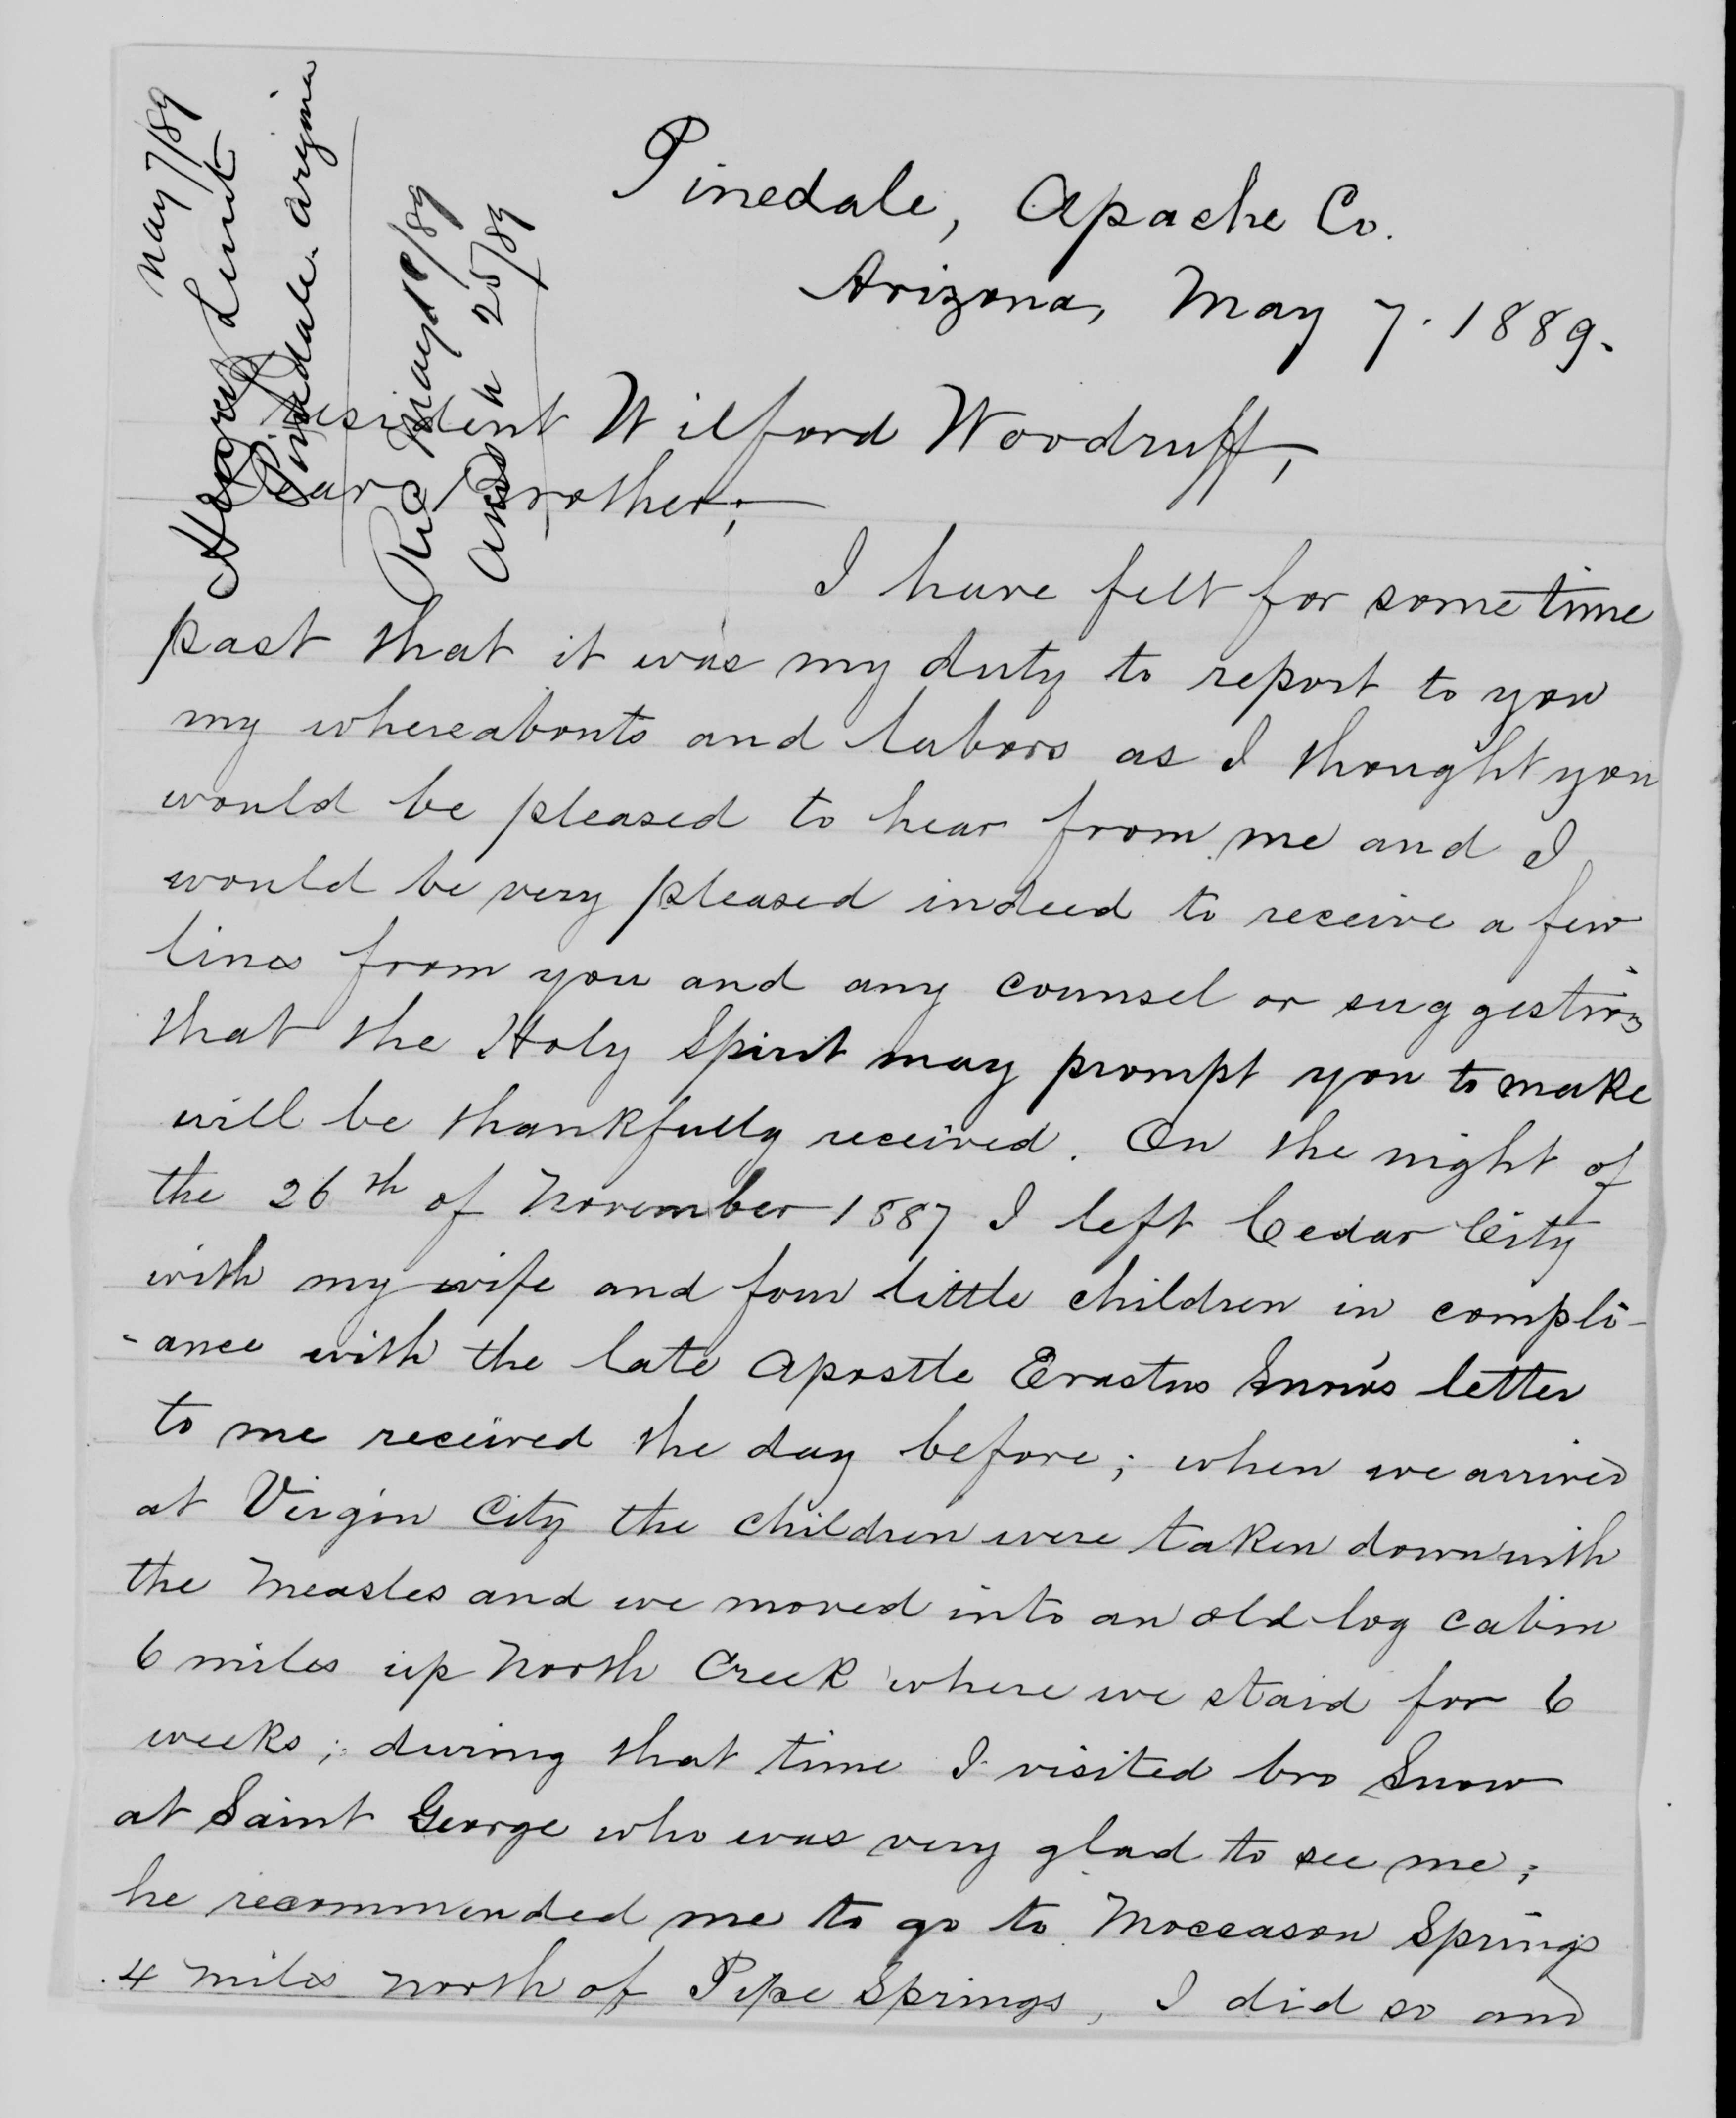 May 7/89
Henry Lunt
Pinedale. Arizona
Rec May 18/89
Ansd 25/89
Pinedale, Apache Co.
Arizona, May 7. 1889.
President Wilford Woodruff,
Dear Brother;
I have felt for some time
past that it was my duty to report to you
my whereabouts and labors as I thought you
would be pleased to hear from me and I
would be very pleased indeed to receive a few
lines from you and any counsel or suggestions
that the Holy Spirit may prompt you to make
will be thankfully received. On the night of
the 26th of November 1887 I left Cedar City
with my wife and four little children in compli-
-ance with the late Apostle Erastus Snow's letter
to me received the day before; when we arrived
at Virgin City the children were taken down with
the Measles and we moved into an old log cabin
6 miles up North Creek where we staid for 6
weeks; during that time I visited bro Snow
at Saint George who was very glad to see me;
he recommended me to go to Moccason Springs
4 miles north of Pipe Springs, I did so and